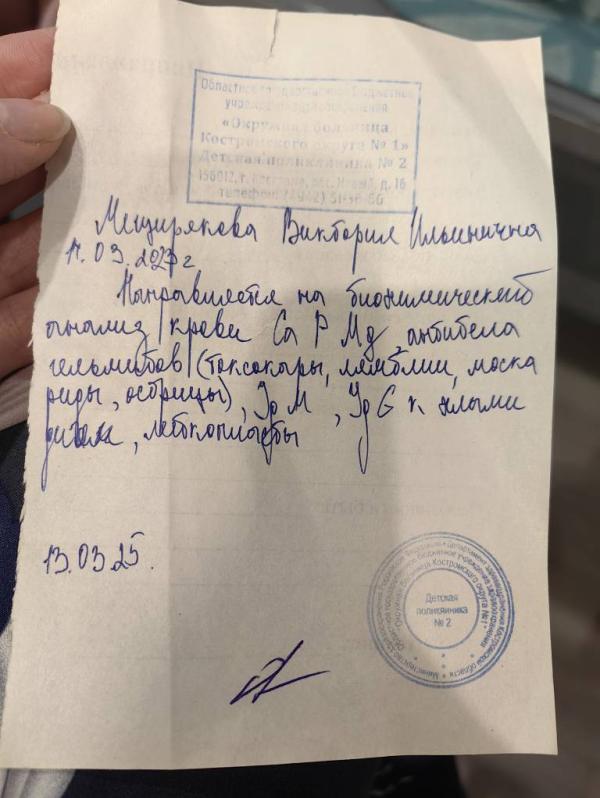 Областное государственное бюджетное
учреждение здравоохранения
«Окружная больница
Костромского округа № 1»
Детская поликлиника № 2
156012, г. Кострома, пос. Новый, д. 16
телефон: (4942)
Мещирякова Виктория Ильинична
03. 2023 г
Направляется на биохимический
анализ крови Ca P Mg, антитела
гельминтов (токсокары, лямблии, моска
риды, острицы), Jg M , Jg G к
13.03.25.
Детская
поликлиника
№ 2